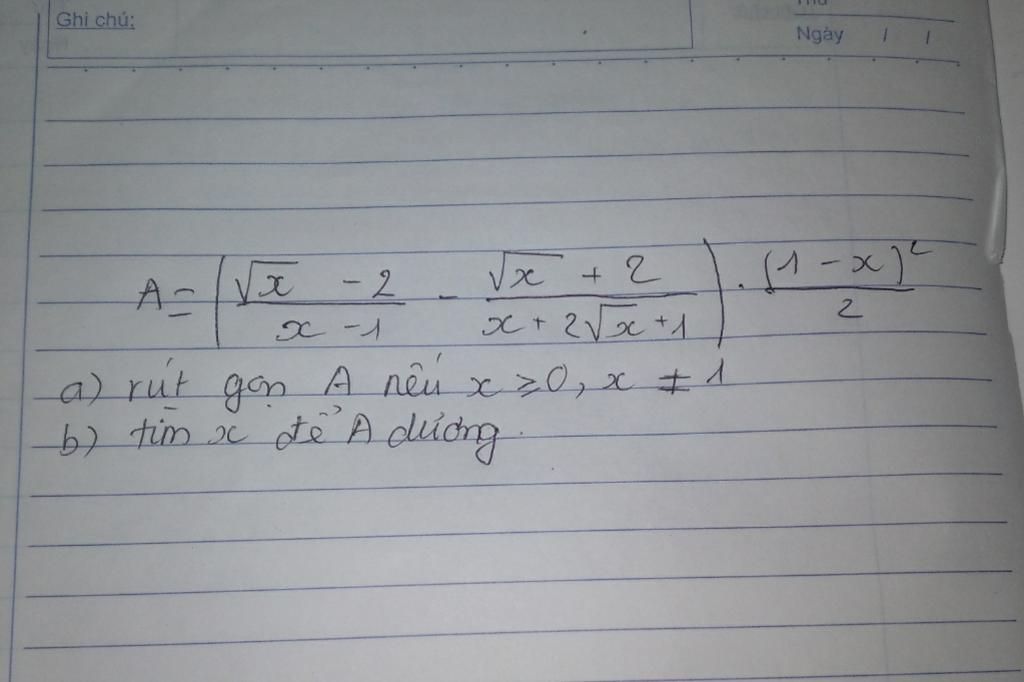 Ghi chú:
Thứ
Ngày / /
A = (√x - 2 / x - 1 - √x + 2 / x + 2√x + 1) . (1 - x)² / 2
a) rút gọn A nếu x ≥ 0, x ≠ 1
b) tìm x để A dương.